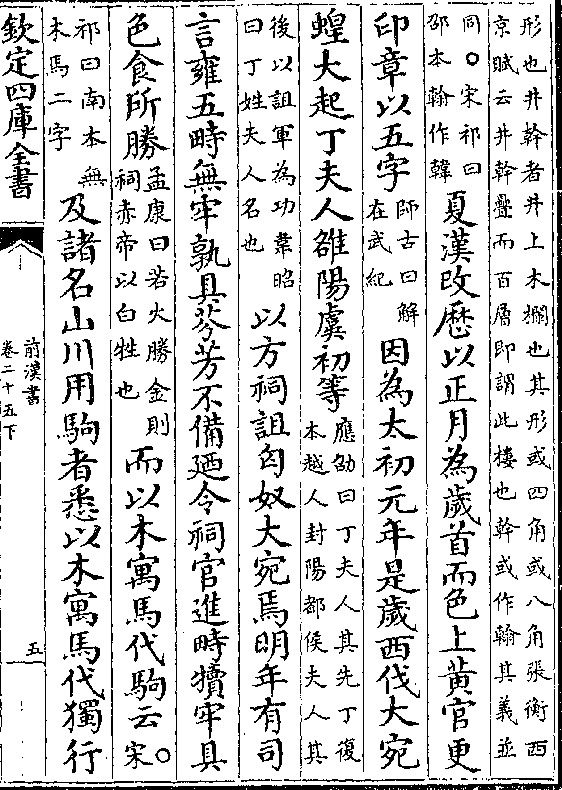 形也井幹者井上木欄也其形或四角或八角張衡西
京賦云井幹疊而百層即謂此樓也幹或作翰其義並
同○宋祁曰
邵本翰作韓
夏漢改歷以正月為歲首而色上黃官更
印章以五字
師古曰解
在武紀
因為太初元年是歲西伐大宛
蝗大起丁夫人雒陽虞初等
應劭曰丁夫人其先丁復
本越人封陽都侯夫人其
後以詛軍為功韋昭
曰丁姓夫人名也
以方祠詛匈奴大宛焉明年有司
言雍五畤無牢孰具芬芳不備廼令祠官進畤犢牢具
色食所勝
孟康曰若火勝金則
祠赤帝以白牲也
而以木寓馬代駒云
○宋
祁曰南本無
木馬二字
及諸名山川用駒者悉以木寓馬代獨行
欽定四庫全書
前漢書
卷二十五下
五